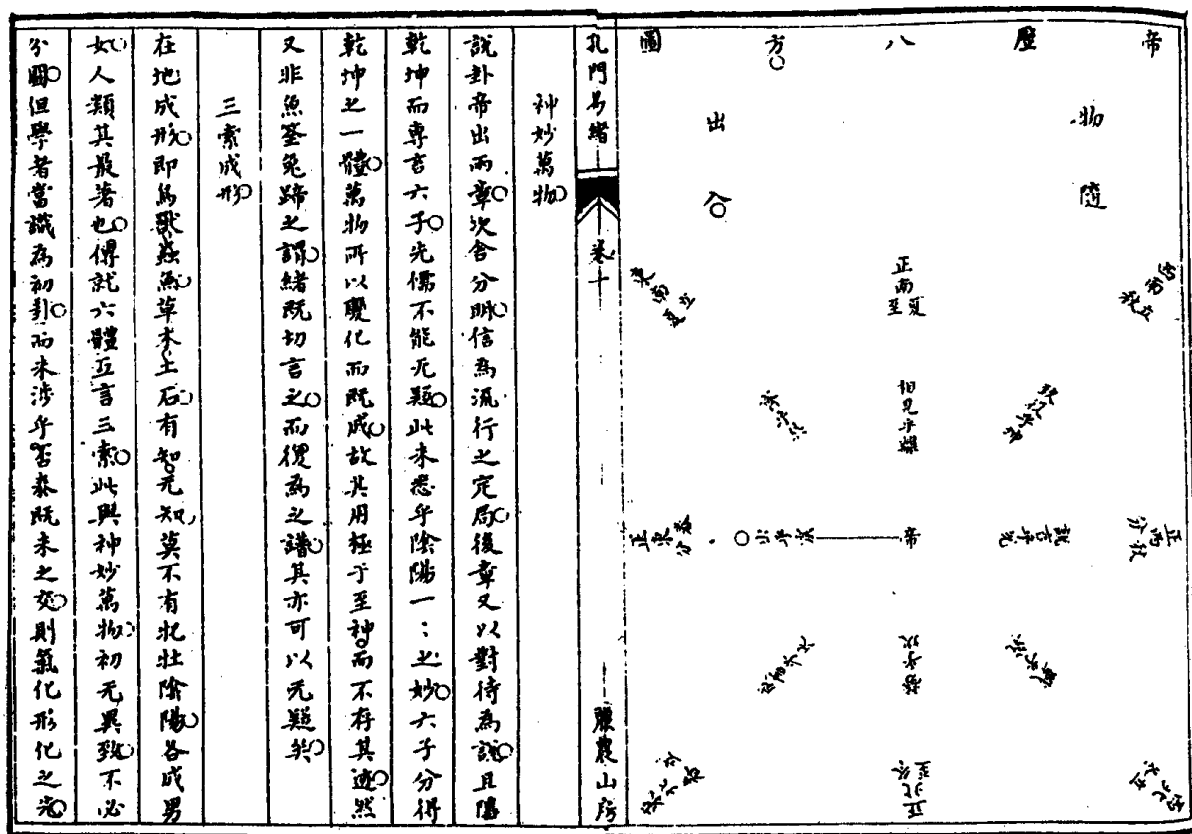 帝歷八方圖
物隨
出入
西南立秋
正南夏至
東南立夏
致役乎坤
相見乎離
齊乎巽
正西秋分
說言乎兌
帝
出乎震
正東春分
戰乎乾
勞乎坎
正北冬至
孔門易緒
卷十
山房
神妙萬物
說卦帝出兩章次舍分明信為流行之定局後章又以對待為說且隱
乾坤而專言六子先儒不能无疑此未悉乎陰陽一:之妙六子分得
乾坤之一體萬物所以變化而既成故其用極于至神而不存其迹然
又非魚筌兔蹄之謂緒既切言之而復為之譜其亦可以无疑矣
三索成形
在地成形即鳥獸蟲魚草木土石有知无知莫不有牝牡陰陽各成男
女人類其最著也傳就六體互言三索此與神妙萬物初无異致不必
分圖但學者當識為初劃而未涉乎否泰既未之交則氣化形化之先